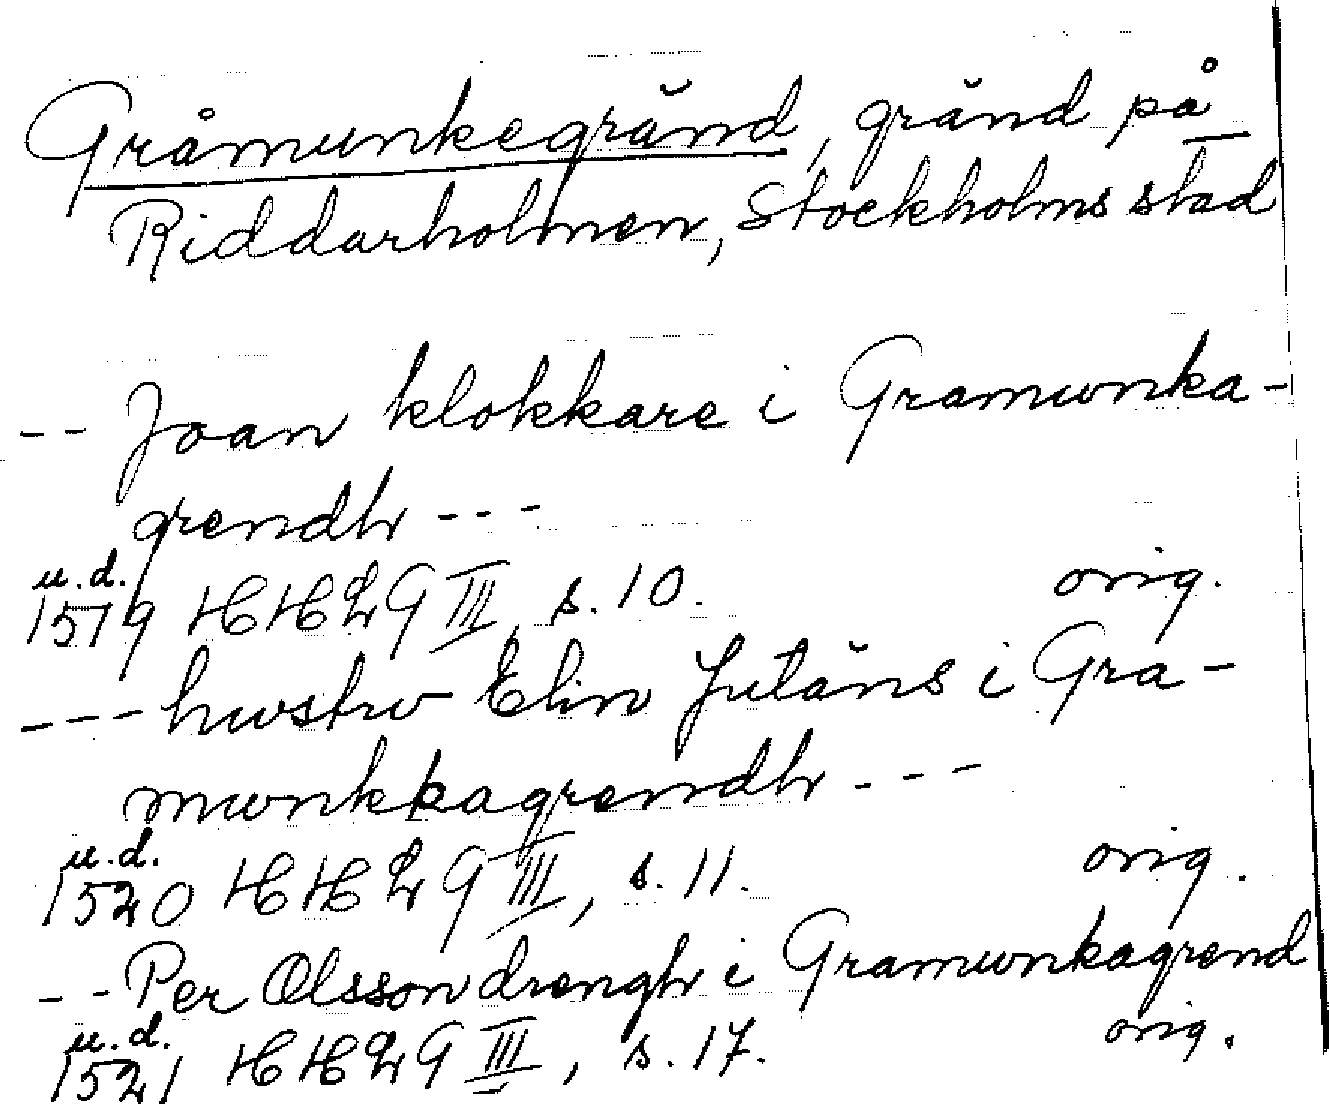 Gråmunkegränd, gränd på
Riddarholmen, Stockholms stad
-- Joan klokkare i Gramwnka-
grendh ---
u.d.
1519 HHLG III, s. 10. orig.
--- hwstrv Elin Jutäns i Gra-
mwnkkagrendh ---
u.d.
1520 HHLG III, s. 11. orig.
-- Per Olsson drengh i Gramwnkagrend
u.d. orig.
1521 HHLG III, s. 17.